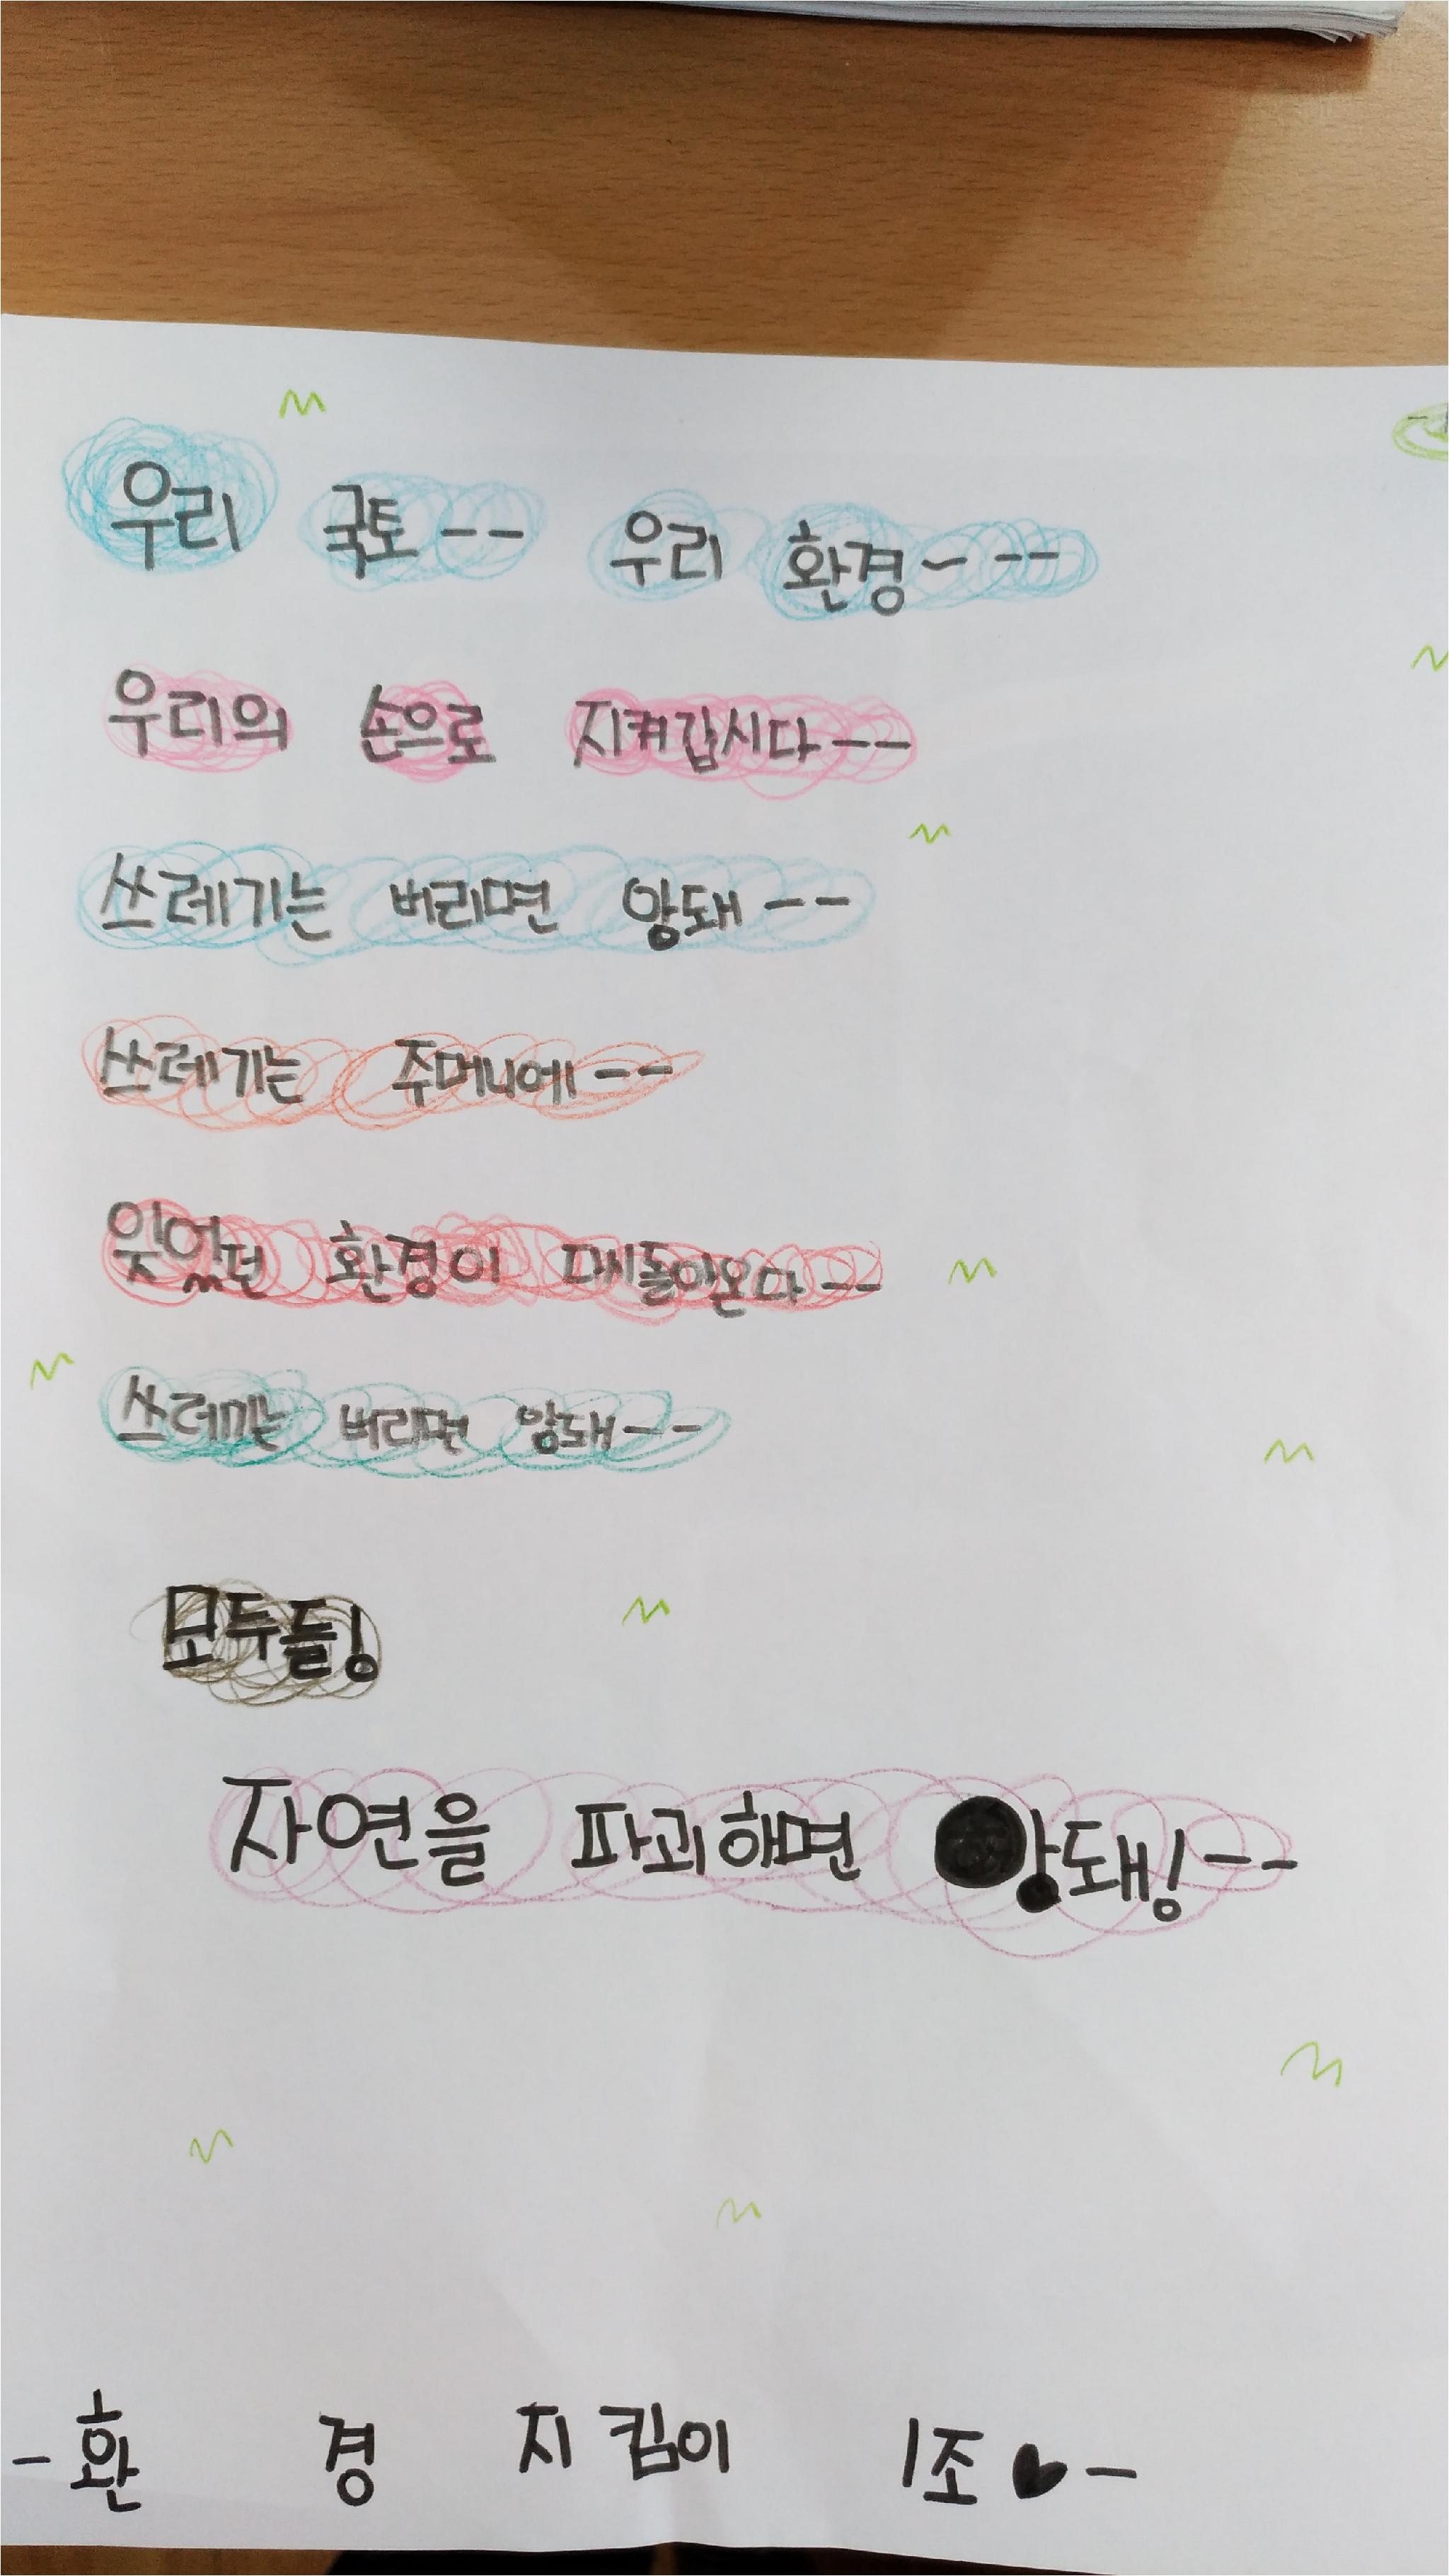 우리 국토-- 우리 환경~--
우리의 손으로 지켜갑시다--
쓰레기는 버리면 앙돼--
쓰레기는 주머니에--
잊었던 환경이 되돌아온다--
쓰레기는 버리면 앙돼--
모두들!
자연을 파괴해면 앙돼!--
-환 경 지킴이 1조♥-